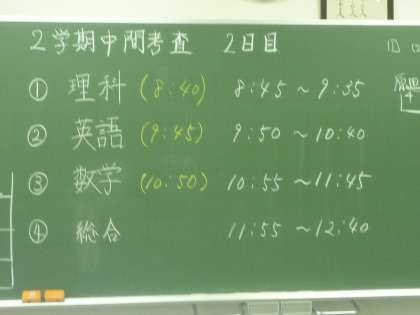 2学期中間考査 2日目
① 理科 (8:40) 8:45 ~ 9:35
② 英語 (9:45) 9:50 ~ 10:40
③ 数学 (10:50) 10:55 ~ 11:45
④ 総合 11:55 ~ 12:40